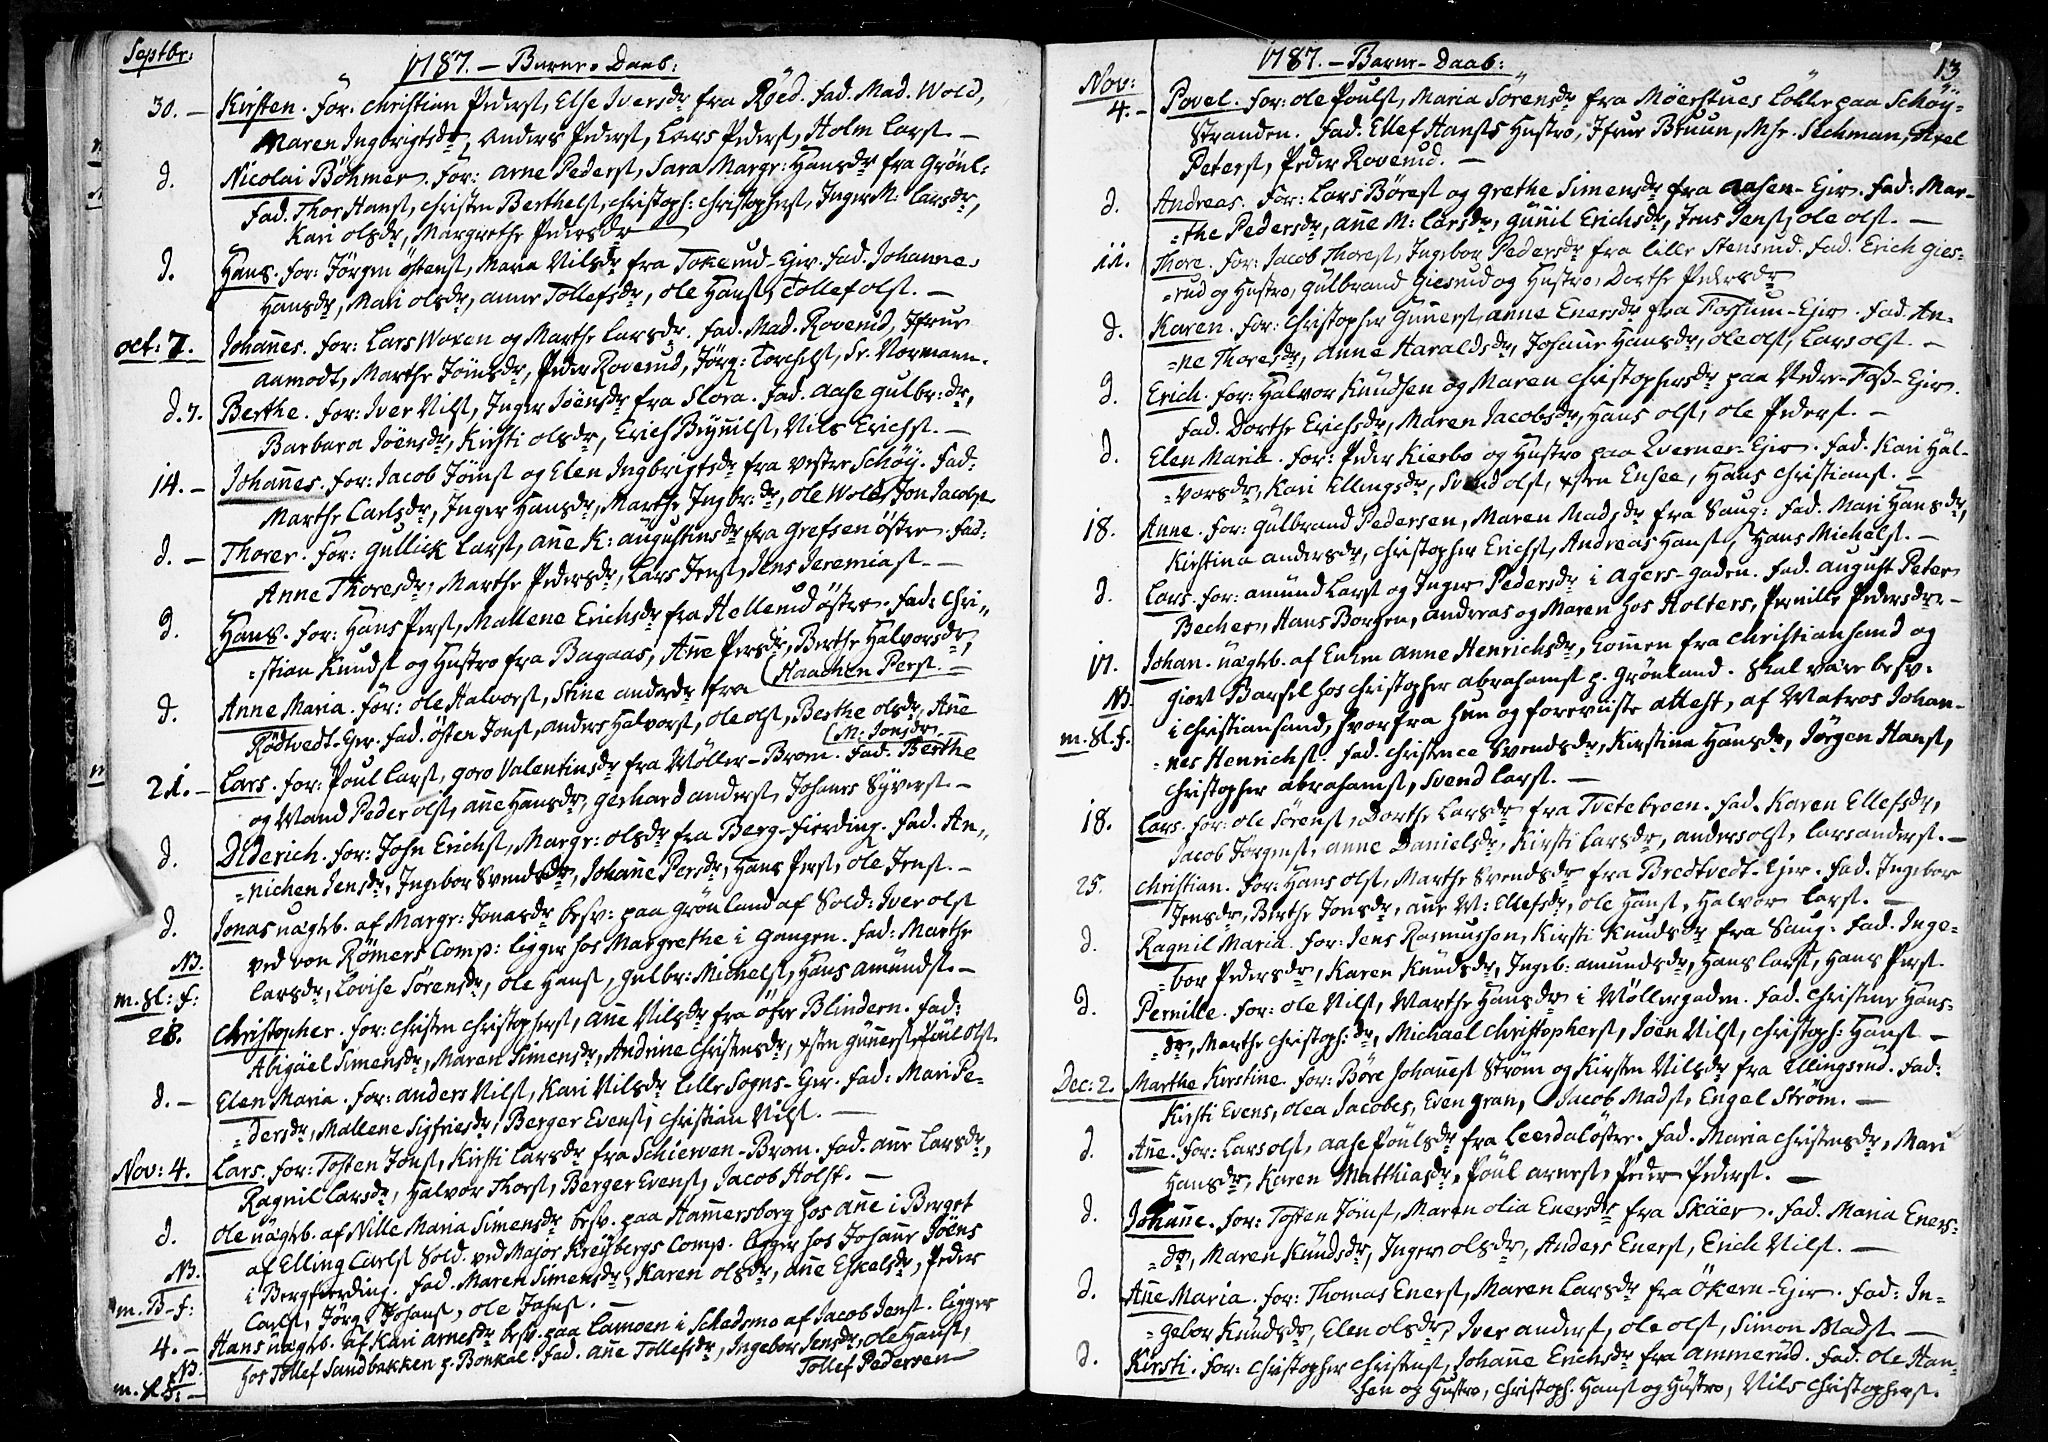 Septbr:
1787. – Barne-Daab:
30. – Kirsten. For. Christian Peders., Else Iversdr fra Røed. Fad. Mad. Wold,
Maren Ingbrigtsdr, Anders Peders., Lars Peders., Holm Lars. –
d. Nicolai Böhmer. For: Arne Peders., Sara Margr: Hansdr fra Grönl:
Fad. Thor Hans., Christen Berthels., Christoph: Christophers., Inger M: Larsdr,
Kari Olsdr, Margrethe Pedersdr
d. Hans. For: Jörgen Östens., Maria Nilsdr fra Tokerud-Ejer. Fad. Johanne
Hansdr, Mari Olsdr, Anne Tollefsdr, Ole Hans., Tollef Ols. –
Oct: 7. Johan̄es. For: Lars Woxen og Marthe Larsdr. Fad. Mad. Roverud, Jfrue
Aamodt, Marthe Jönsdr, Peder Roverud, Jörg: Torchels., Sr. Normann.
d. 7. Berthe. For: Iver Nils., Inger Jöensdr fra Flora. Fad. Aase Gulbr: dr,
Barbara Jöensdr, Kirsti Olsdr, Erich Brynils., Nils Erichs. –
14. – Johan̄es. For: Jacob Jöms. og Elen Ingbrigtsdr fra Vestre Schöy. Fad:
Marthe Carlsdr, Inger Hansdr, Marthe Ingbr: dr, Ole Wold, Jon Jacobs.
d. – Thorer. For: Gullick Lars., An̄e K: Augustinsdr fra Grefsen östre. Fad:
Anne Thoresdr, Marthe Pedersdr, Lars Jens., Jens Jeremias. –
d. Hans. For: Hans Pers., Mallene Erichsdr fra Hellerud östre. Fad: Chri„
=stian Knuds. og Hustro fra Bagaas, An̄e Persdr, Berthe Halvorsdr,
(Haachen Pers. –
d. Anne Maria. For: Ole Halvors., Stine Andersdr fra
Rödtvedt-Ejer. Fad. Östen Jons., Anders Halvors., Ole Ols., Berthe Olsdr, An̄e
(M: Jonsdr. –
21. – Lars. For: Poul Lars., Goro Valentinsdr fra Möller-Broen. Fad. Berthe
og Mand Peder Ols., An̄e Hansdr, Gerhard Anders., Johan̄es Syvers. –
d. Diderich. For: John Erichs., Margr: Olsdr fra Berg-Fierding. Fad. An„
=nichen Jensdr, Ingebor Svendsdr, Johan̄e Persdr, Hans Pers., Ole Jens. –
d. Jonas uægtb. af Margr: Jonasdr besv: paa Grönland af Sold: Iver Ols.
NB. ved von Römers Comp: ligger hos Margrethe i Gangen. Fad: Marthe
m. Sl: f: Larsdr, Lovise Sörensdr, Ole Hans., Gulbr: Michels., Hans Amunds. –
28. Christopher. For: Christen Christophers., An̄e Nilsdr fra öfre Blindern. Fad:
Abigäel Simensdr, Maren Simensdr, Andrine Christensdr, Östen Gun̄ers., Poul Ols.
d. – Elen Maria. For: Anders Nils., Kari Nilsdr Lille Sogns-Ejer. Fad: Mari Pe=
=dersdr, Mallene Sigfriesdr, Berger Evens., Christian Nils. –
Nov: 4. Lars. For: Tosten Jons., Kirsti Larsdr fra Schierven-Broen. Fad. An̄e Larsdr,
Ragnil Larsdr, Halvor Thors., Berger Evens., Jacob Holst. –
d. Ole uægtb. af Nille Maria Simensdr besv. paa Ham̄ersborg hos An̄e i Berget
NB. af Elling Carls. Sold. ved Major Kreybergs Comp. ligger hos Johan̄e Jöens
m. B – f: i Bergfierding. Fad. Maren Simensdr, Karen Olsdr, An̄e Eskelsdr, Peder
Carls., Jörg: Johans., Ole Johns. –
4. – Hans uægtb. af Kari Arnesdr besv. paa Lamoen i Schedsmo af Jacob Jens. ligger
NB. hos Tollef Sandbakken p. Bonkal. Fad. An̄e Tollefsdr, Ingebor Jensdr, Ole Hans.,
m. Sl. f: – Tollef Pedersen
13
1787. – Barne-Daab:
Nov:
4. – Povel. For: Ole Pouls., Maria Sörensdr fra Möerstues Lökke paa Schöy=
Stranden. Fad. Ellef Hans̄s Hustro, Jfrue Bruun, Mr. Sechman, Axel
Peters., Peder Roverud. –
d. Andreas. For: Lars Böres. og Grethe Simensdr fra Aasen-Ejer. Fad: Mar-
=the Pedersdr, An̄e M: Larsdr, Gun̄il Erichsdr, Jens Jens., Ole Ols. –
11. Thore. For: Jacob Thores., Ingebor Pedersdr fra Lille Stensrud. Fad. Erich Gies=
=rud og Hustro, Gulbrand Giesrud og Hustro, Dorthe Pedersdr
d. Karen. For: Christopher Gun̄ers., Anne Enersdr fra Fossum-Ejer. Fad. An=
=ne Thoresdr, Anne Haraldsdr, Johan̄e Hansdr, Ole Ols., Lars Ols. –
d. Erich. For: Halvor Knudsen og Maren Christophersdr paa Nedre-Foss-Ejer.
Fad. Dorthe Erichsdr, Maren Jacobsdr, Hans Ols., Ole Peders. –
d. Elen Maria. For: Peder Kierbo og Hustro paa Qverner-Ejer. Fad. Kari Hal-
=vorsdr, Kari Ellingsdr, Svend Ols., Östen Ensee, Hans Christians. –
18. Anne. For: Gulbrand Pedersen, Maren Madsdr fra Saug: Fad. Mari Hansdr,
Kirstina Andersdr, Christopher Erichs., Andreas Hans., Hans Michels. –
d. Lars. For: Amund Lars. og Inger Pedersdr i Agers-Gaden. Fad. August Peter
Becher, Hans Borgen, Andreas og Maren hos Holters, Pernille Pedersdr –
11. Johan. uægtb. af Enken Anne Henrichsdr, kom̄en fra Christiansand og
NB. giort Barsel hos Christopher Abrahams. p. Grönland. Skal være besv:
m. Sl. f. i Christiansand, hvorfra hun og foreviiste Attest, af Matros Johan-
=nes Henrichs. Fad. Christence Svendsdr, Kirstina Hansdr, Jörgen Hans.,
Christopher Abrahams., Svend Lars. –
18. Lars. For: Ole Sörens., Dorthe Larsdr fra Tvetebroen. Fad. Karen Ellefsdr,
Jacob Jörgens., Anne Danielsdr, Kirsti Larsdr, Anders Ols., Lars Anders. –
25. Christian. For: Hans Ols., Marthe Svendsdr fra Bredtvedt-Ejer. Fad. Ingebor
Jensdr, Berthe Jonsdr, An̄e M: Ellefsdr, Ole Hans., Halvor Lars. –
d. Ragnil Maria. For: Jens Rasmussen, Kirsti Knudsdr fra Saug: Fad. Inge=
=bor Pedersdr, Karen Knudsdr, Ingeb: Amundsdr, Hans Lars., Hans Pers.
d. Pernille. For: Ole Nils., Marthe Hansdr i Möllergaden. Fad. Christine Hans=
=dr, Marthe Christoph: dr, Michael Christophers., Jöen Nils., Christoph: Hans. –
Dec: 2. Marthe Kirstine. For: Böre Johan̄es. Ström og Kirsten Nilsdr fra Ellingsrud. Fad:
Kirsti Evens, Olea Jacobes, Even Gran, Jacob Mads., Engel Ström. –
d. An̄e. For: Lars Ols., Aase Poulsdr fra Leerdal östre. Fad. Maria Christensdr, Mari
Hansdr, Karen Matthiasdr, Poul Arnes., Peder Peders. –
d. Johan̄e. For: Tosten Jöms., Maren Olia Enersdr fra Skäer. Fad. Maria Eners=
=dr, Maren Knudsdr, Inger Olsdr, Anders Eners., Erich Nils. –
d. An̄e Maria. For: Thomas Eners., Maren Larsdr fra Ökern-Ejer. Fad: In=
=gebor Knudsdr, Elen Olsdr, Iver Anders., Ole Ols., Simon Mads. –
d. Kirsti. For: Christopher Christens., Johan̄e Erichsdr fra Ammerud. Fad. Ole Han=
sen og Hustro, Christoph. Hans. og Hustro, Nils Christophers.